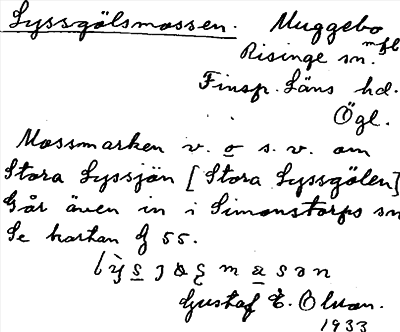 Lyssgölsmossen. Muggebo
Risinge sn. m fl
Finsp. Läns hd.
Ögl.
Mossmarken v. o s. v. om
Stora Lyssjön [Stora Lyssgölen]
Går även in i Simonstorps sn
Se kartan G 55.
Gustaf E. Olsson.
1933